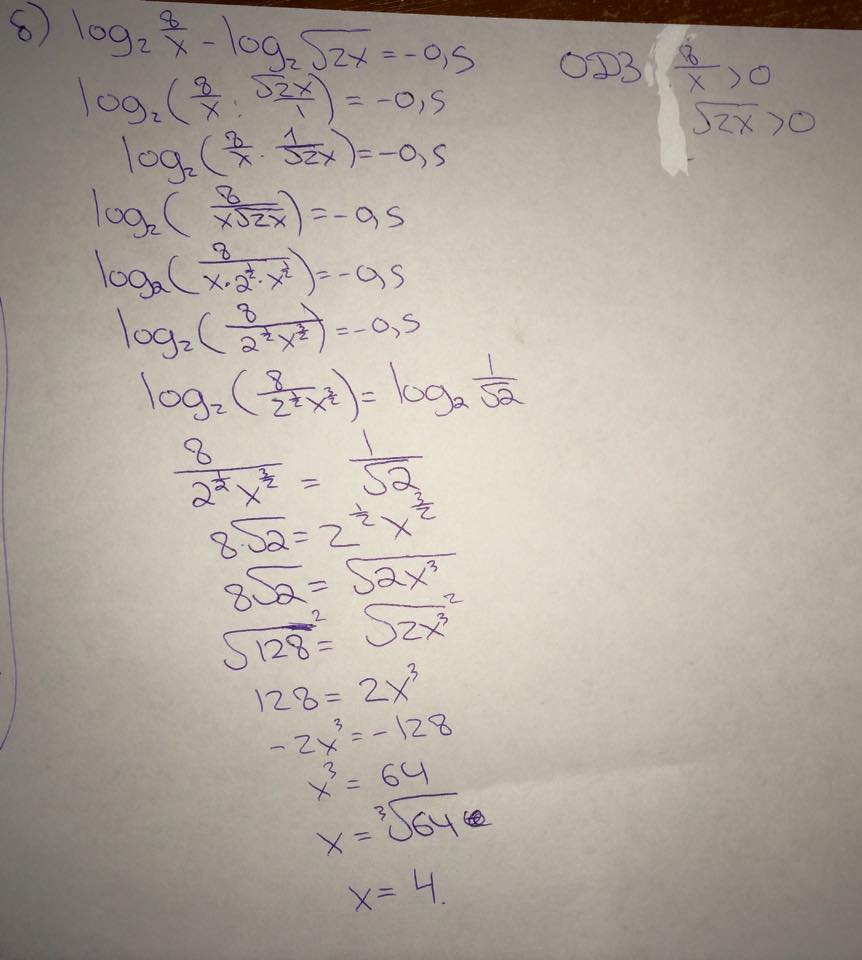 б) log₂ 8/x - log₂ √2x = -0,5
ОДЗ 8/x > 0
√2x > 0
log₂ (8/x : √2x/1) = -0,5
log₂ (8/x · 1/√2x) = -0,5
log₂ (8/x√2x) = -0,5
log₂ (8/x·2^½·x^½) = -0,5
log₂ (8/2^½x^3/2) = -0,5
log₂ (8/2^½x^3/2) = log₂ 1/√2
8/2^½x^3/2 = 1/√2
8·√2 = 2^½x^3/2
8√2 = √2x³
√128² = √2x³²
128 = 2x³
-2x³ = -128
x³ = 64
x = ³√64
x = 4.